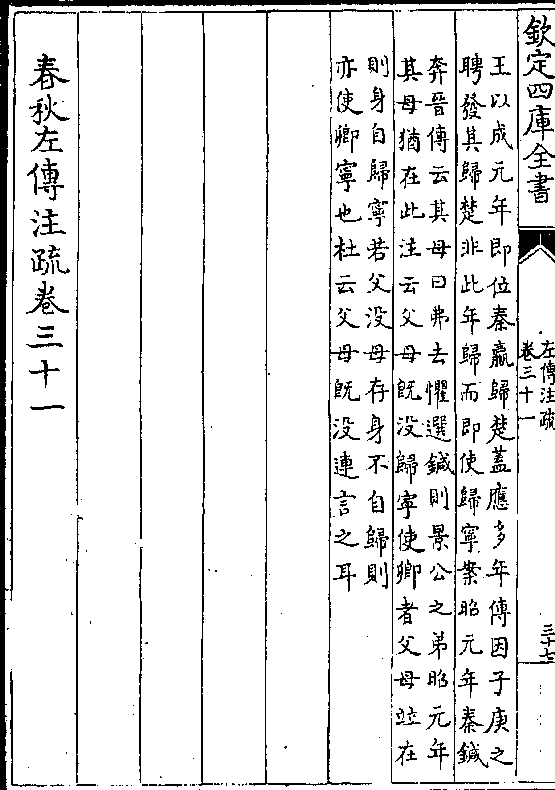 欽定四庫全書
左傳注疏
卷三十一
三十七
王以成元年即位秦嬴歸楚蓋應多年傳因子庚之
聘發其歸楚非此年歸而即使歸寧案昭元年秦鍼
奔晉傳云其母曰弗去懼選鍼則景公之弟昭元年
其母猶在此注云父母既沒歸寧使卿者父母竝在
則身自歸寧若父沒母存身不自歸則
亦使卿寧也杜云父母既沒連言之耳
春秋左傳注疏卷三十一